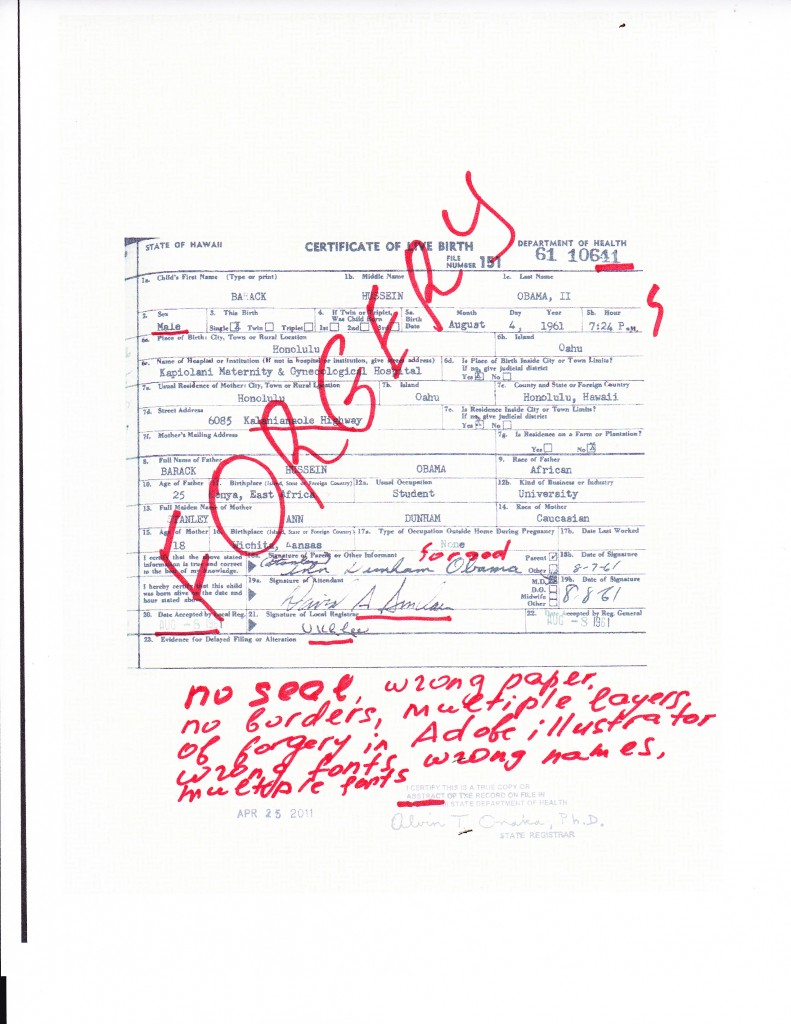 STATE OF HAWAII CERTIFICATE OF LIVE BIRTH DEPARTMENT OF HEALTH
FILE NUMBER 151 61 10641
1a. Child's First Name (Type or print) 1b. Middle Name 1c. Last Name
BARACK HUSSEIN OBAMA, II
2. Sex 3. This Birth 4. If Twin or Triplet, Was Child Born 5a. Birth Date Month Day Year 5b. Hour
Male Single X Twin Triplet 1st 2nd 3rd August 4, 1961 7:24 P.M.
6a. Place of Birth: City, Town or Rural Location 6b. Island
Honolulu Oahu
6c. Name of Hospital or Institution (If not in hospital or institution, give street address) 6d. Is Place of Birth Inside City or Town Limits? If no, give judicial district
Kapiolani Maternity & Gynecological Hospital Yes X No
7a. Usual Residence of Mother: City, Town or Rural Location 7b. Island 7c. County and State or Foreign Country
Honolulu Oahu Honolulu, Hawaii
7d. Street Address 7e. Is Residence Inside City or Town Limits? If no, give judicial district
6085 Kalanianaole Highway Yes X No
7f. Mother's Mailing Address 7g. Is Residence on a Farm or Plantation?
Yes No X
8. Full Name of Father 9. Race of Father
BARACK HUSSEIN OBAMA African
10. Age of Father 11. Birthplace (Island, State or Foreign Country) 12a. Usual Occupation 12b. Kind of Business or Industry
25 Kenya, East Africa Student University
13. Full Maiden Name of Mother 14. Race of Mother
STANLEY ANN DUNHAM Caucasian
15. Age of Mother 16. Birthplace (Island, State or Foreign Country) 17a. Type of Occupation Outside Home During Pregnancy 17b. Date Last Worked
18 Wichita, Kansas None
I certify that the above stated information is true and correct to the best of my knowledge. 18a. Signature of Parent or Other Informant Parent Other 18b. Date of Signature
(Stanley) Ann Dunham Obama 8-7-61
forged
I hereby certify that this child was born alive on the date and hour stated above. 19a. Signature of Attendant M.D. D.O. Midwife Other 19b. Date of Signature
David A Sinclair 8-8-61
20. Date Accepted by Local Reg. 21. Signature of Local Registrar 22. Date Accepted by Reg. General
AUG -8 1961 U K Lee AUG -8 1961
23. Evidence for Delayed Filing or Alteration
FORGERY
no seal, wrong paper,
no borders, multiple layers
of forgery in Adobe illustrator
wrong fonts wrong names,
multiple fonts
APR 25 2011
I CERTIFY THIS IS A TRUE COPY OR
ABSTRACT OF THE RECORD ON FILE IN
STATE DEPARTMENT OF HEALTH
Alvin T. Onaka, Ph.D.
STATE REGISTRAR